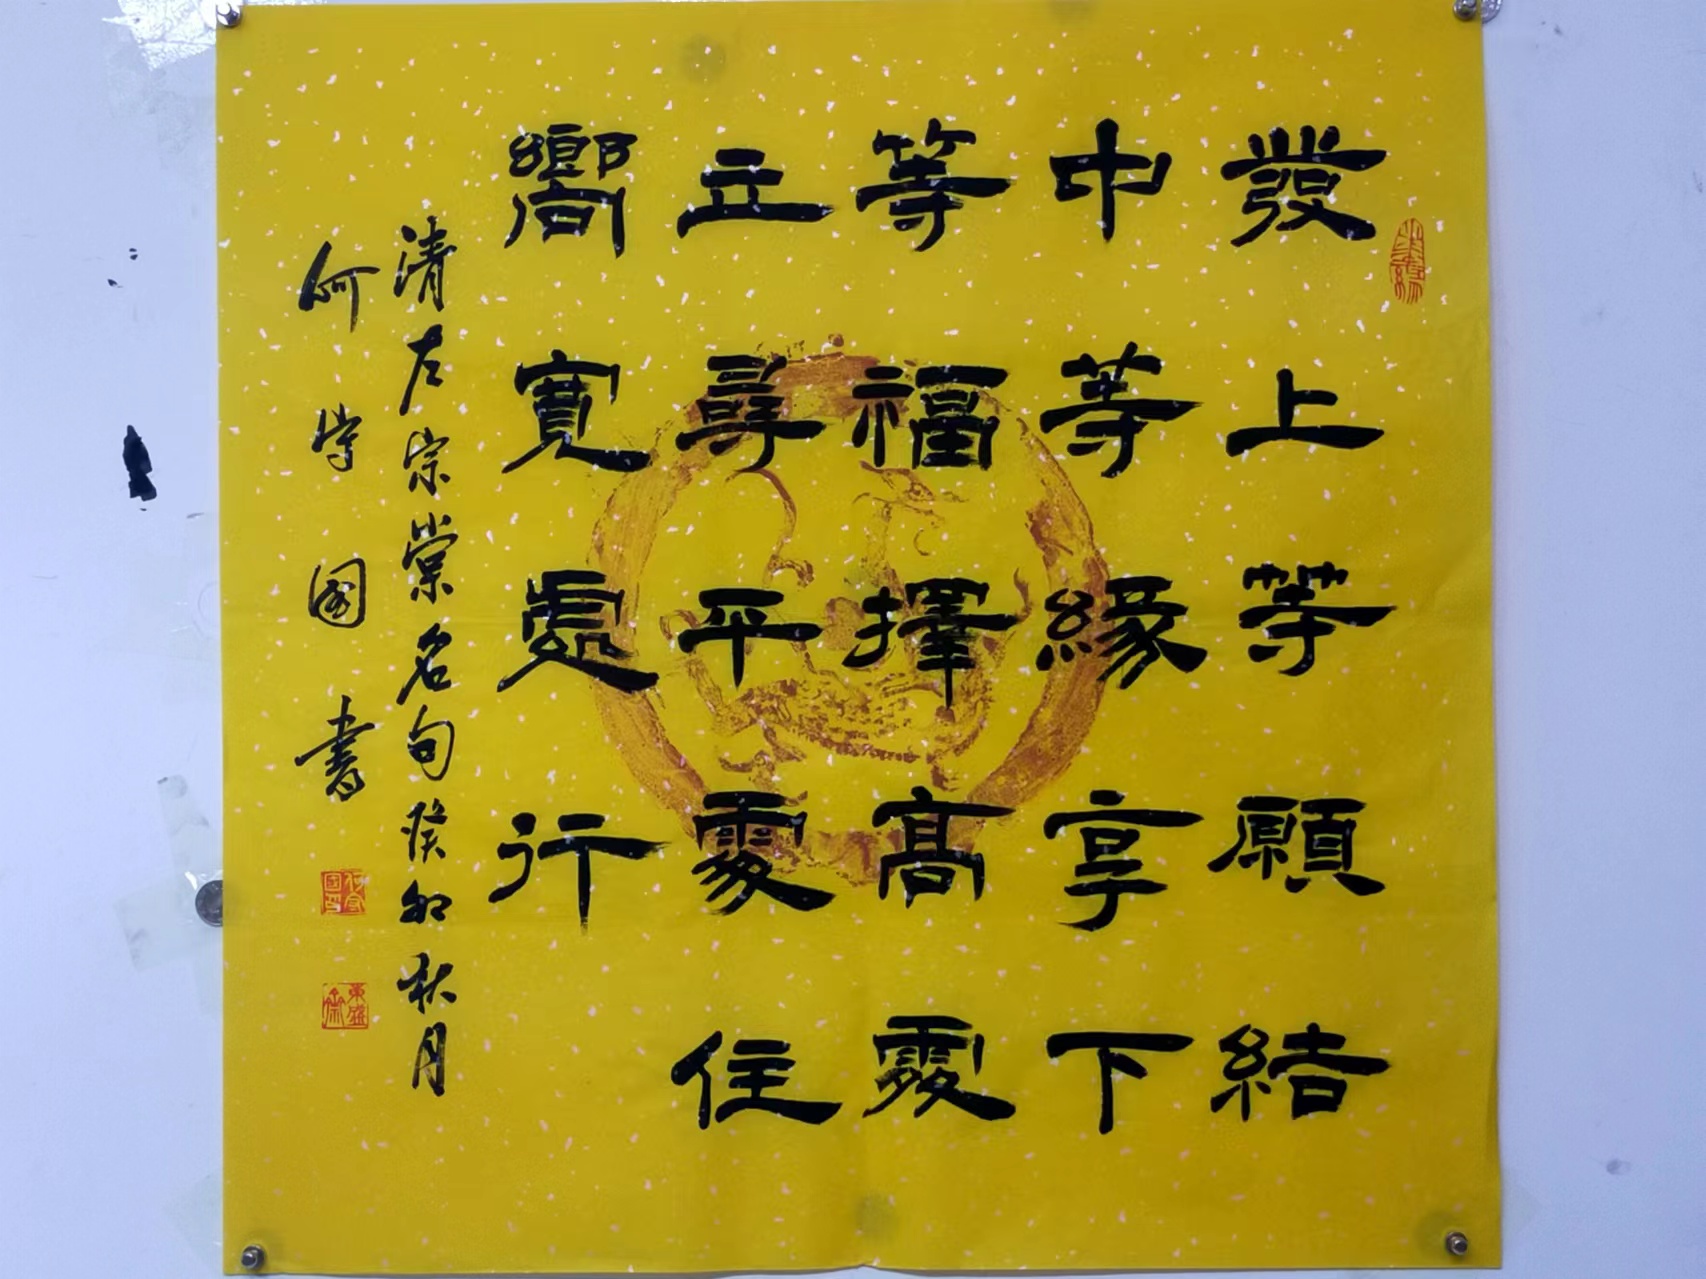 發上等願結
中等緣享下
等福擇高處
立尋平處住
嚮寬處行
清左宗棠名句癸卯秋月
何守國書